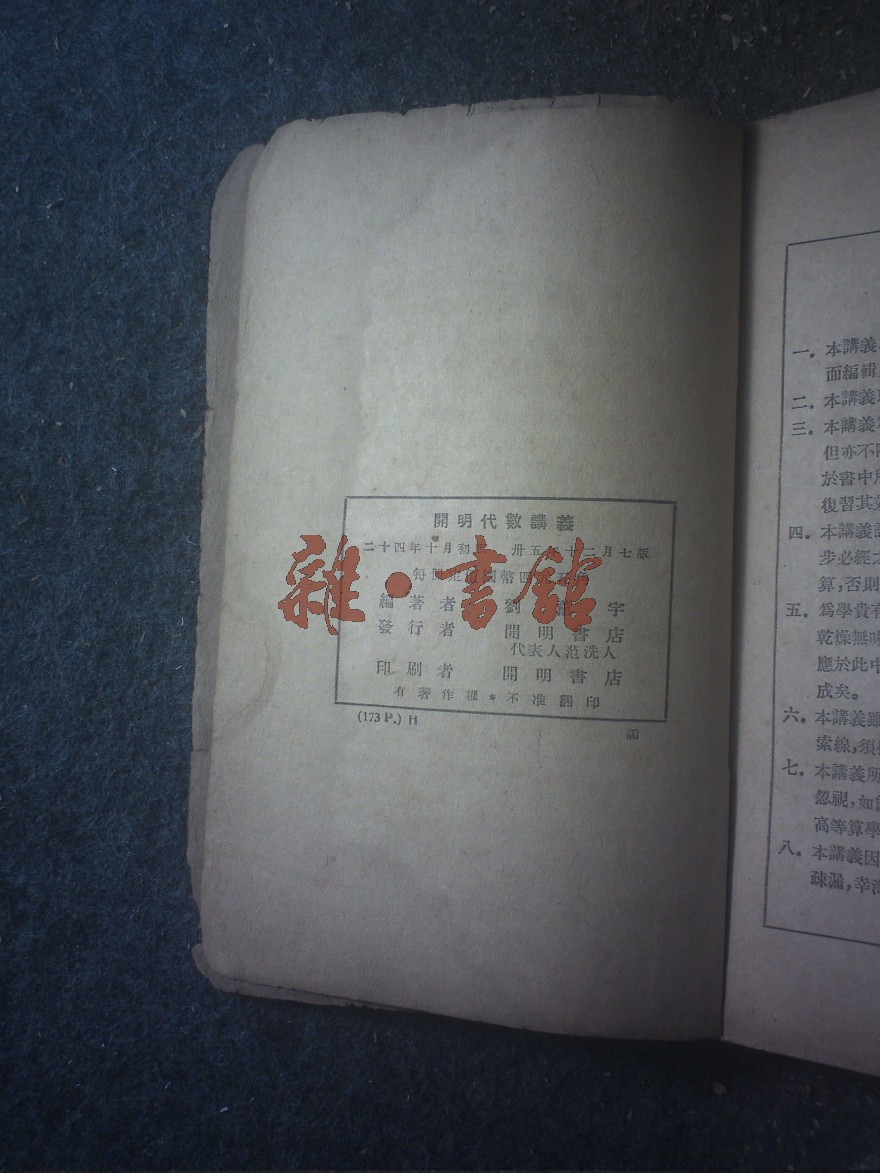 開明代數講義
二十四年十月初版 卅五年十二月七版
每冊定價國幣四
編著者 劉 宇
發行者 開明書店
代表人范洗人
印刷者 開明書店
有著作權*不准翻印
(173 P.) H
雜·書館
一．本講義
面編輯
二．本講義
三．本講義
但亦不
於書中
復習其
四．本講義
步必經
算，否則
五．爲學貴有
乾燥無味
應於此中
成矣。
六．本講義雖
索線，須
七．本講義所
忽視，如
高等算學
八．本講義因
疎漏，幸